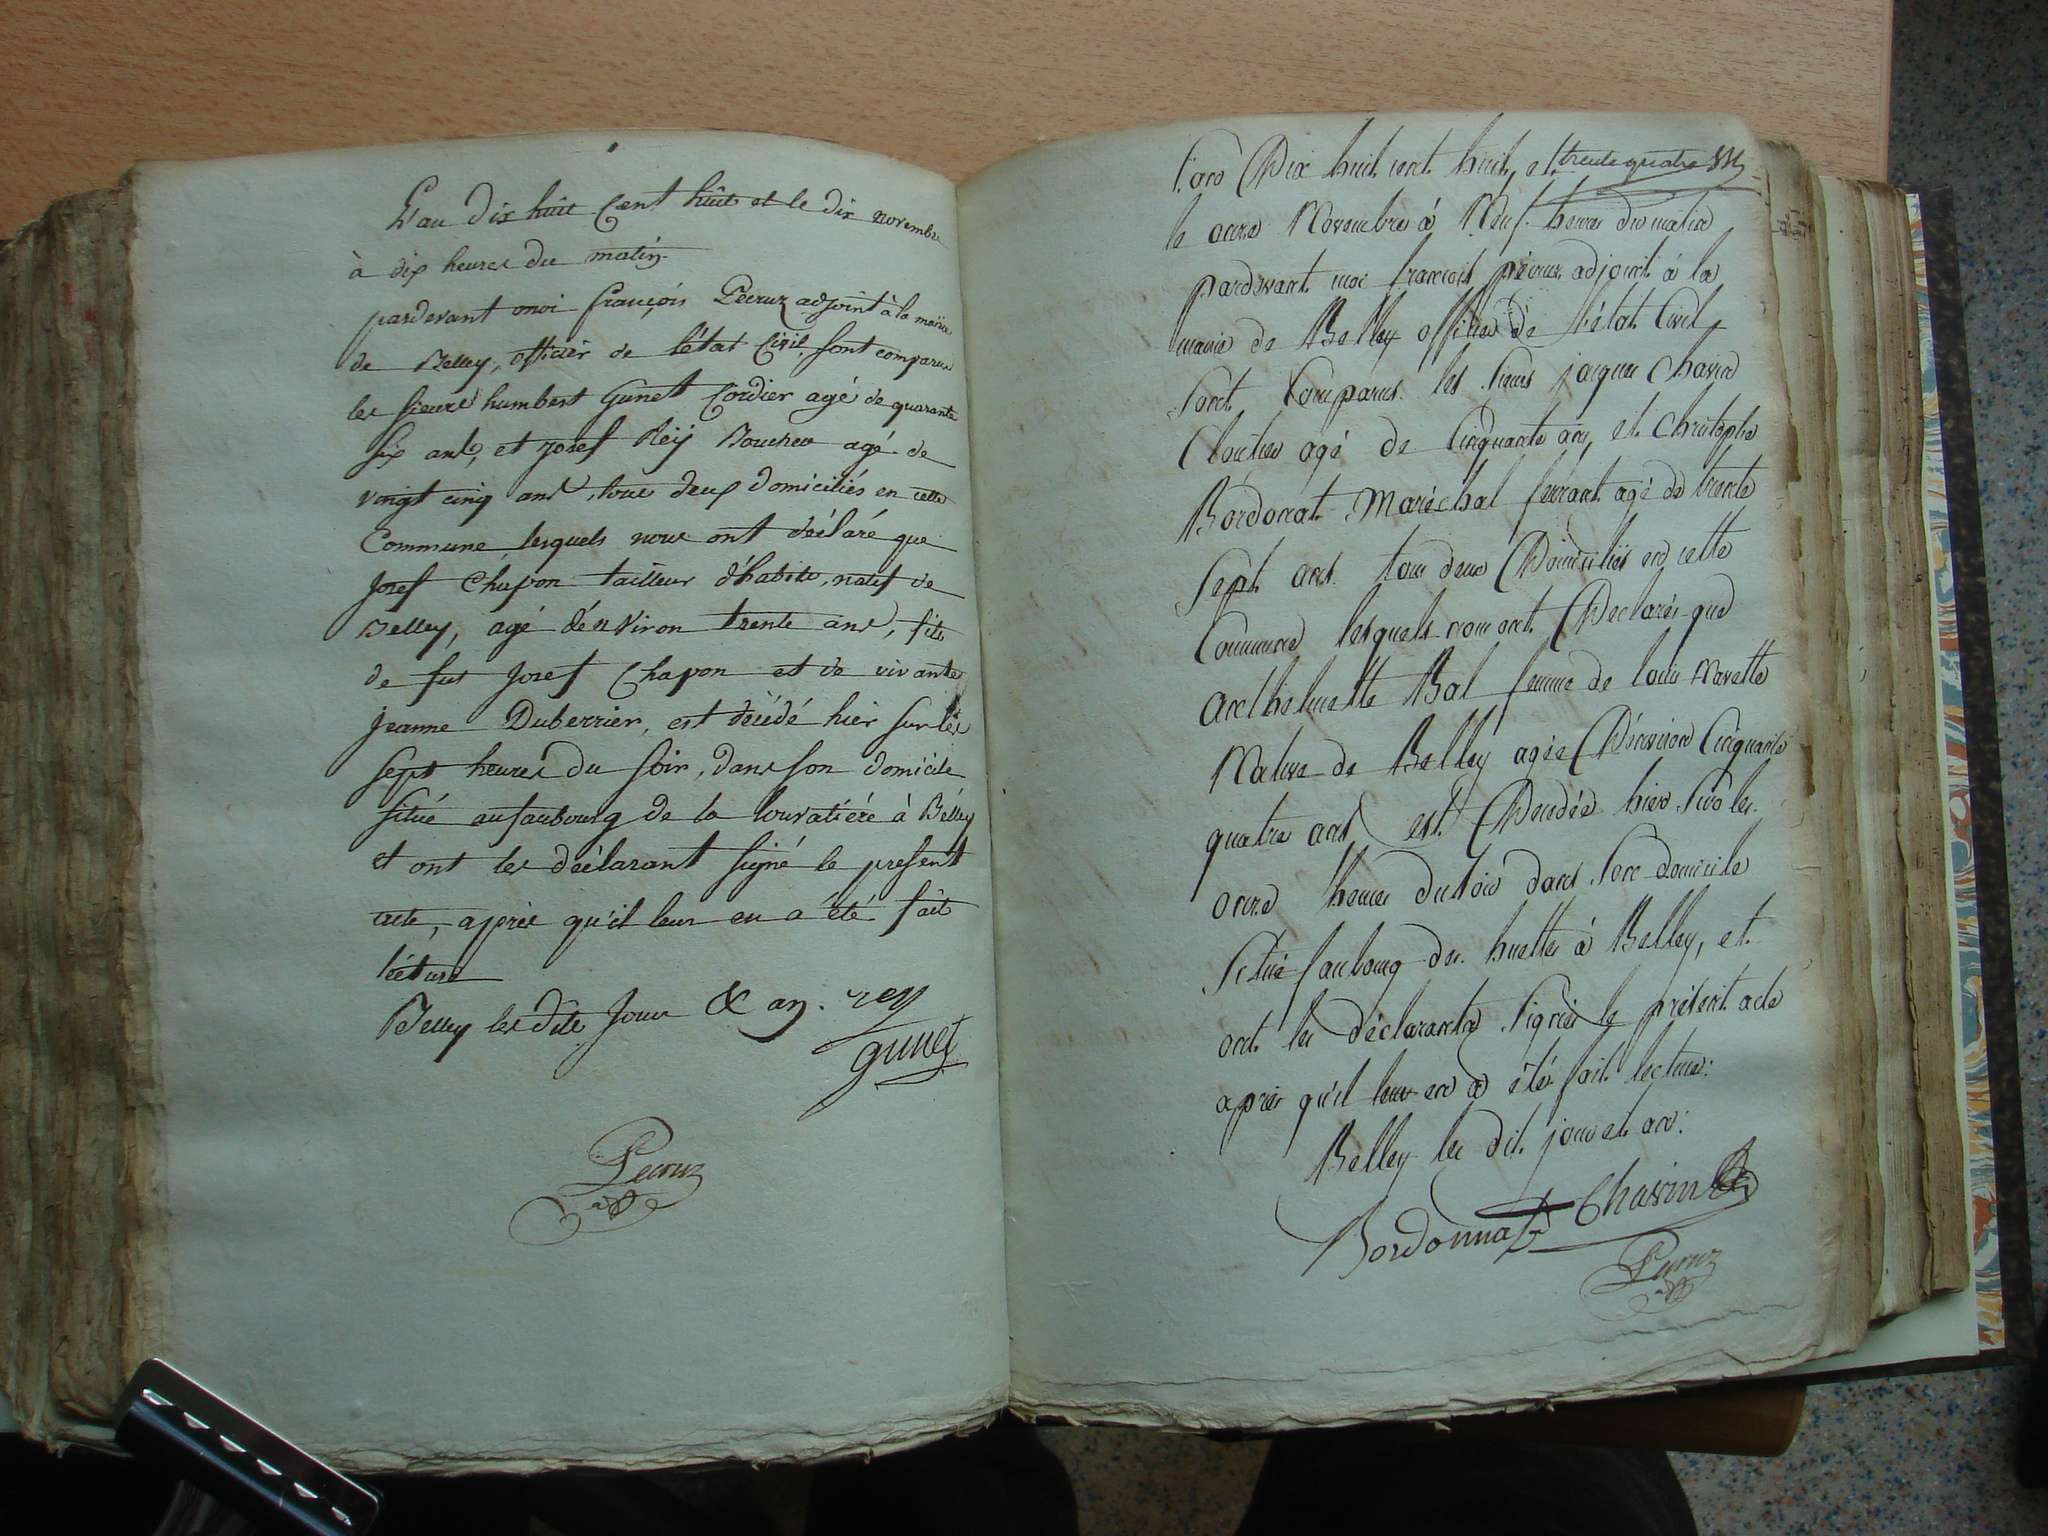 L'an dix huit Cent huit et le dix novembre
à dix heures du matin
pardevant moi françois Pecruz adjoint à la mairie
de Belley, officier de l'état Civil, sont comparus
les sieurs humbert Gunet Cordier agé de quarante
six ans, et josef Reÿ Boucher agé de
vingt cinq ans, tous deux domiciliés en cette
Commune, lesquels nous ont déclaré que
Josef Chapon tailleur d'habits, natif de
Belley, agé d'environ trente ans, fils
de fut Josef Chapon et de vivante
Jeanne Duberrier, est décédé hier sur les
sept heures du soir, dans son domicile
situé au faubourg de la louvatiére à Bélley
et ont les déclarant signé le present
acte, après qu'il leur en a été fait
lécture
Belley les dits Jour & an. rey
gunet
Pecruz
L'an Dix huit cent huit, et trente quatre
le onze Novembre à Neuf heures du matin
pardevant moi francois pécruz adjoint à la
mairie de Belley officier de l'état Civil
sont Comparus les sieurs jacques Chavin
Cloutier agé de Cinquante ans, et Christophe
Bordonat Maréchal ferrant agé de trente
sept ans tous deux Domiciliés en cette
Commune lesquels nous ont Declarés que
Anthelmette Bal femme de louis Navette
Native de Belley agée D'environ Cinquante
quatre ans est Decedée hier sur les
onze heures du soir dans son domicile
Situé faubourg des huettes à Belley, et
ont les déclarants signés le présent acte
aprés qu'il leur en a été fait lecture:
Belley les dit jour et an:
Bordonnat Chavin
Pecruz